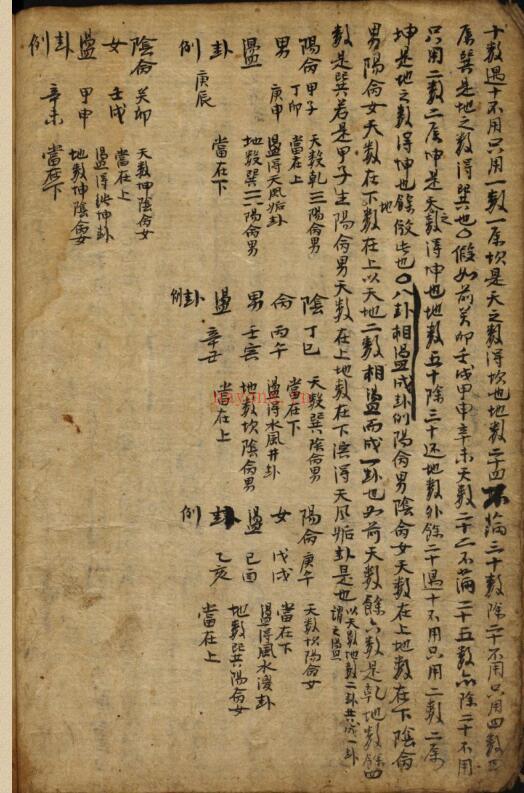 十數遇十不用只用一數一屬坎是天之數得坎也地數二十四不滿三十數除二十不用只用四數四
屬巽是地之數得巽也〇假如前癸卯壬戌甲申辛未天數二十二不滿二十五數亦除二十不用
只用二數二屬坤是天之數得坤也地數五十除三十还地數外餘二十遇十不用只用二數二屬
坤是地之數得坤也餘倣此也〇八卦相盪成卦例陽命男陰命女天數在上地數在下陰命
男陽命女天數在下地數在上以天地二數相盪而成一卦也如前天數餘六數是乾地數餘四
數是巽若是甲子生陽命男天數在上地數在下盪得天風姤卦是也以天數地數二卦共成一卦
謂之盪
陽命男盪卦例
甲子
丁卯
庚申
庚辰
天數乾三陽命男
當在上
盪得天風姤卦
地數巽三陽命男
當在下
陰命女盪卦例
癸卯
壬戌
甲申
辛未
天數坤陰命女
當在上
盪得純坤卦
地數坤陰命女
當在下
陰命男盪卦例
丁巳
丙午
壬寅
辛丑
天數巽陰命男
當在下
盪得水風井卦
地數坎陰命男
當在上
陽命女盪卦例
庚午
戊戌
己酉
乙亥
天數坎陽命女
當在下
盪得風水渙卦
地數巽陽命女
當在上